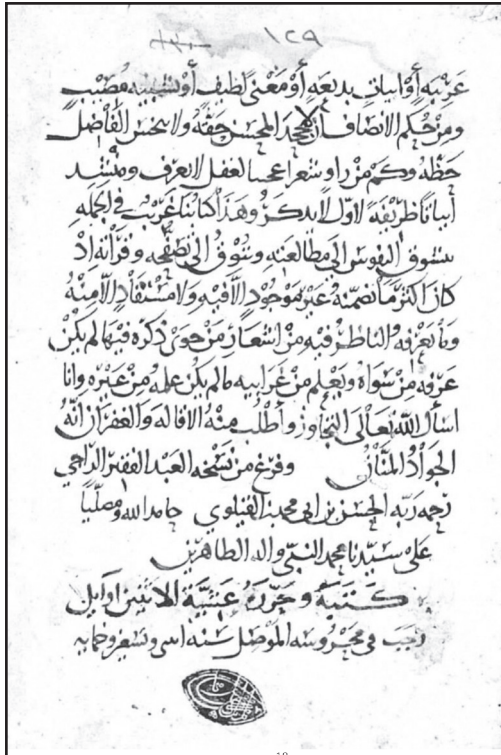 ١٢٩
غريبه أو ابيات بديعه أو معنى لطيف أو تشبيه مصيب
ومن حكم الانصاف أن لا يجحد المحسن حقه ولا يبخس الفاضل
حظه وكم من راو شعرا عجيبا لغفل لا يعرف ومنشد
أبياتا ظريفة لأول لا يذكر وهذا كتابنا غريب في الجمله
تتشوق النفوس الى مطالعته وتتوق الى تصفحه وقرأته اذ
كان اكثر ما تضمنه غير موجود الا فيه ولا مستفاد الا منه
الناظر فيه من اشعار من جرى ذكره فيها لم يكن
عرفه من سواه ويعلم من غرايبه ما لم يكن علمه من غيره وانا
اسأل الله تعالى التجاوز وأطلب منه الاقاله والغفران انه
الجواد المنان وفرغ من نسخه العبد الفقير الراجي
رحمه ربه الحسن بن ابي محمد القيلوي حامدا لله ومصليا
على سيدنا محمد النبي واله الطاهرين
كتبه وحرره عشية الاثنين اوايل
رجب في محروسه الموصل سنه اثنى وتسعين وخمسمايه
19